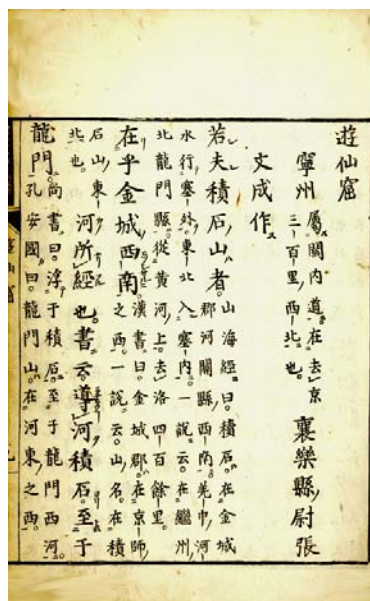 遊仙窟
寧州屬關内道在去京三百里西北也襄樂縣尉張
文成作
若夫積石山者山海經曰積石在金城郡河關縣西南羌中河
水行塞外東北入塞内一說云在繼州北龍門縣從黄河上去洛四百餘里
在乎金城西南漢書曰金城郡在京師之西一說云山名在積
石山東北也河所經也書云導河積石至于
龍門尚書曰浮于積石至于龍門西河孔安國曰龍門山在河東之西